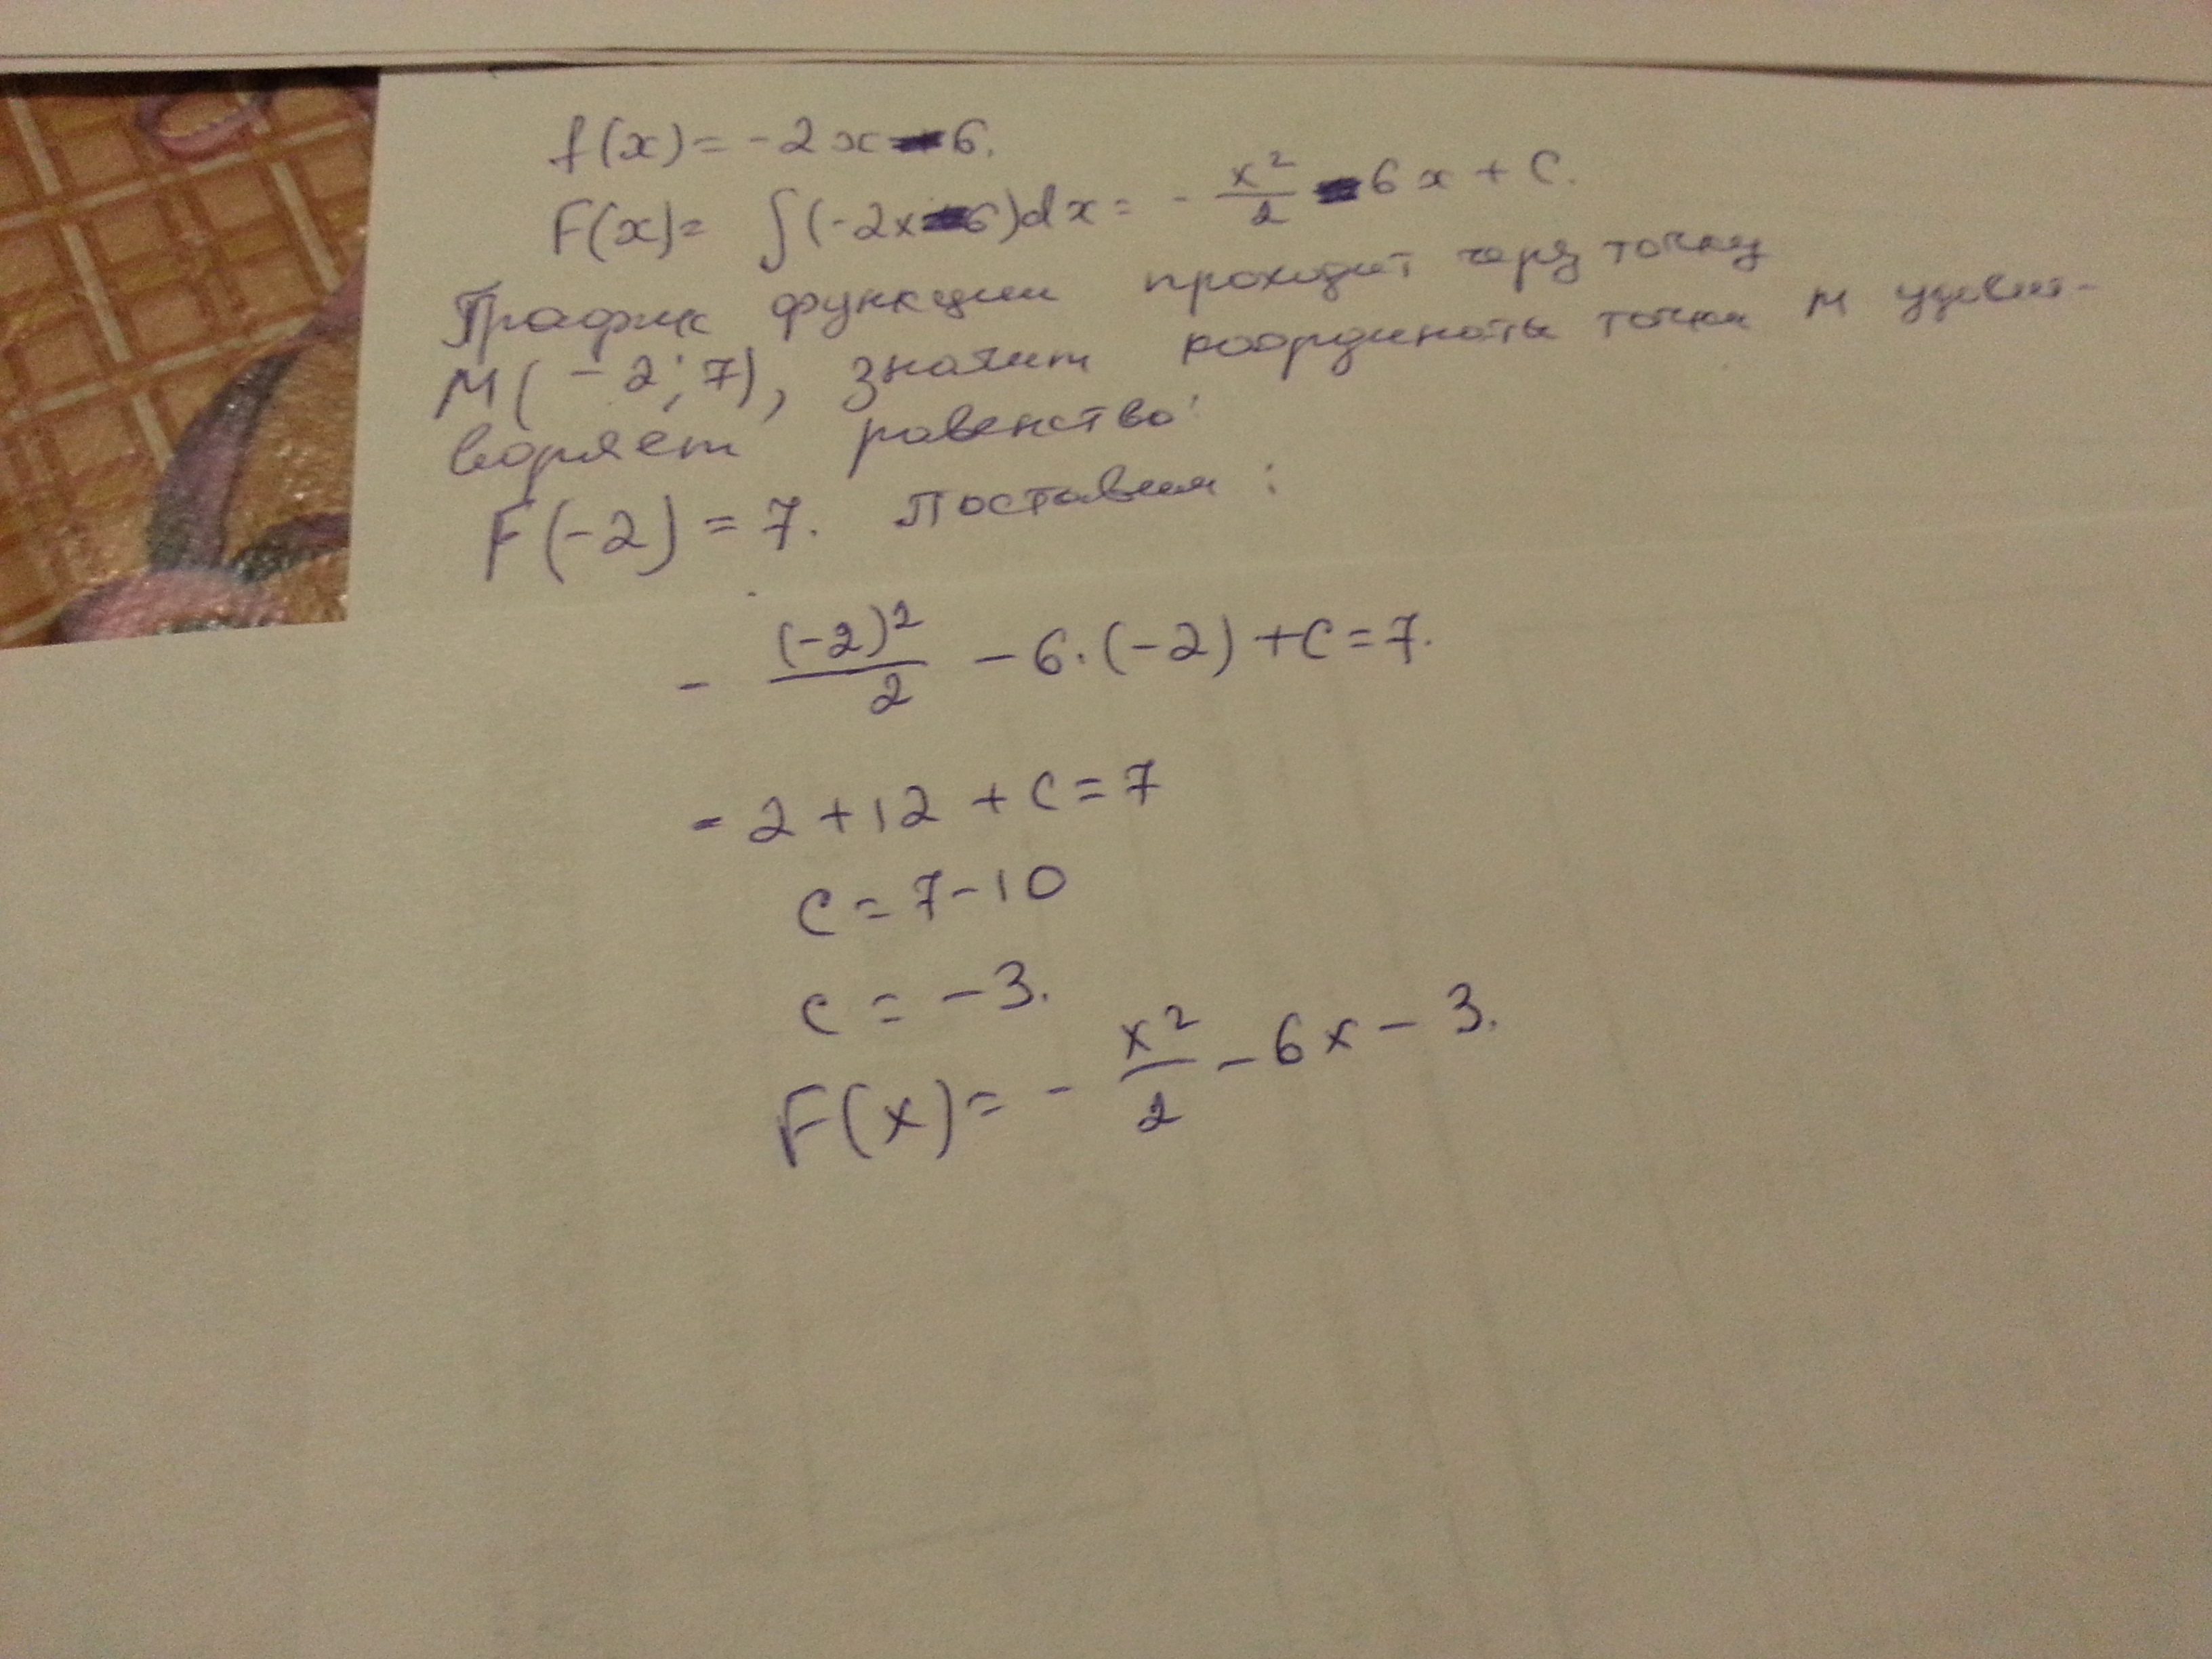 f(x) = -2x - 6.
F(x) = ∫(-2x - 6)dx = - x²/2 - 6x + C.
График функции проходит через точку
M(-2; 7), значит координаты точки M удовлет-
воряет равенство:
F(-2) = 7. Поставим:
- (-2)²/2 - 6·(-2) + C = 7.
- 2 + 12 + C = 7
C = 7 - 10
C = -3.
F(x) = - x²/2 - 6x - 3.